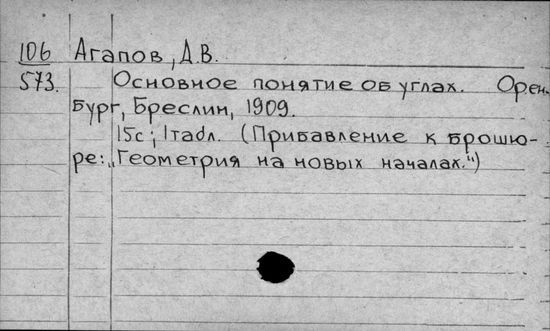 106 Агапов, Д.В.
573. Основное понятие об углах. Орен-
бург, Бреслин, 1909.
15с; 1табл. (Прибавление к брошю-
ре: „Геометрия на новых началах.")